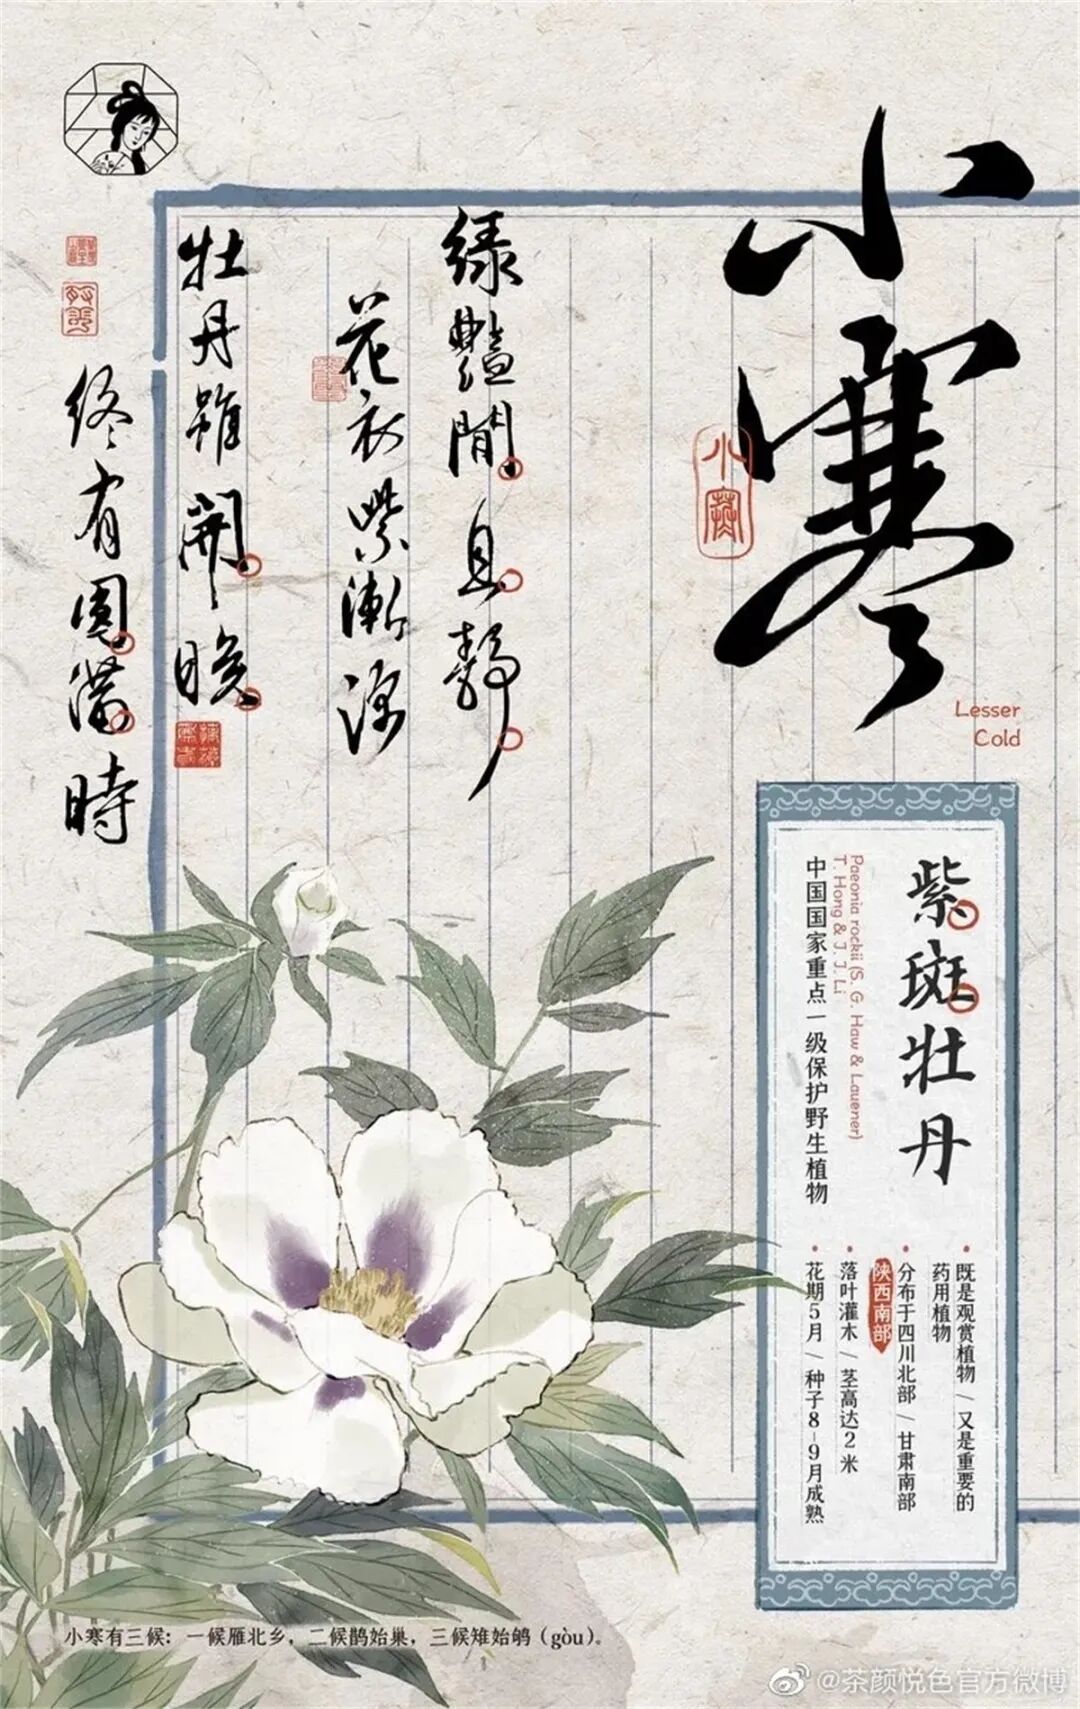 小寒
小寒
Lesser
Cold
绿艷閒且靜
花衣紫漸深
牡丹雖開晚
终有圓滿時
紫斑牡丹
Paeonia rockii (S. G. Haw & Lauener)
T. Hong & J. J. Li
中国国家重点一级保护野生植物
• 既是观赏植物 / 又是重要的
药用植物
• 分布于四川北部 / 甘肃南部
陕西南部
• 落叶灌木 / 茎高达2米
• 花期5月 / 种子8-9月成熟
小寒有三候：一候雁北乡，二候鹊始巢，三候雉始雊（gòu）。
@茶颜悦色官方微博